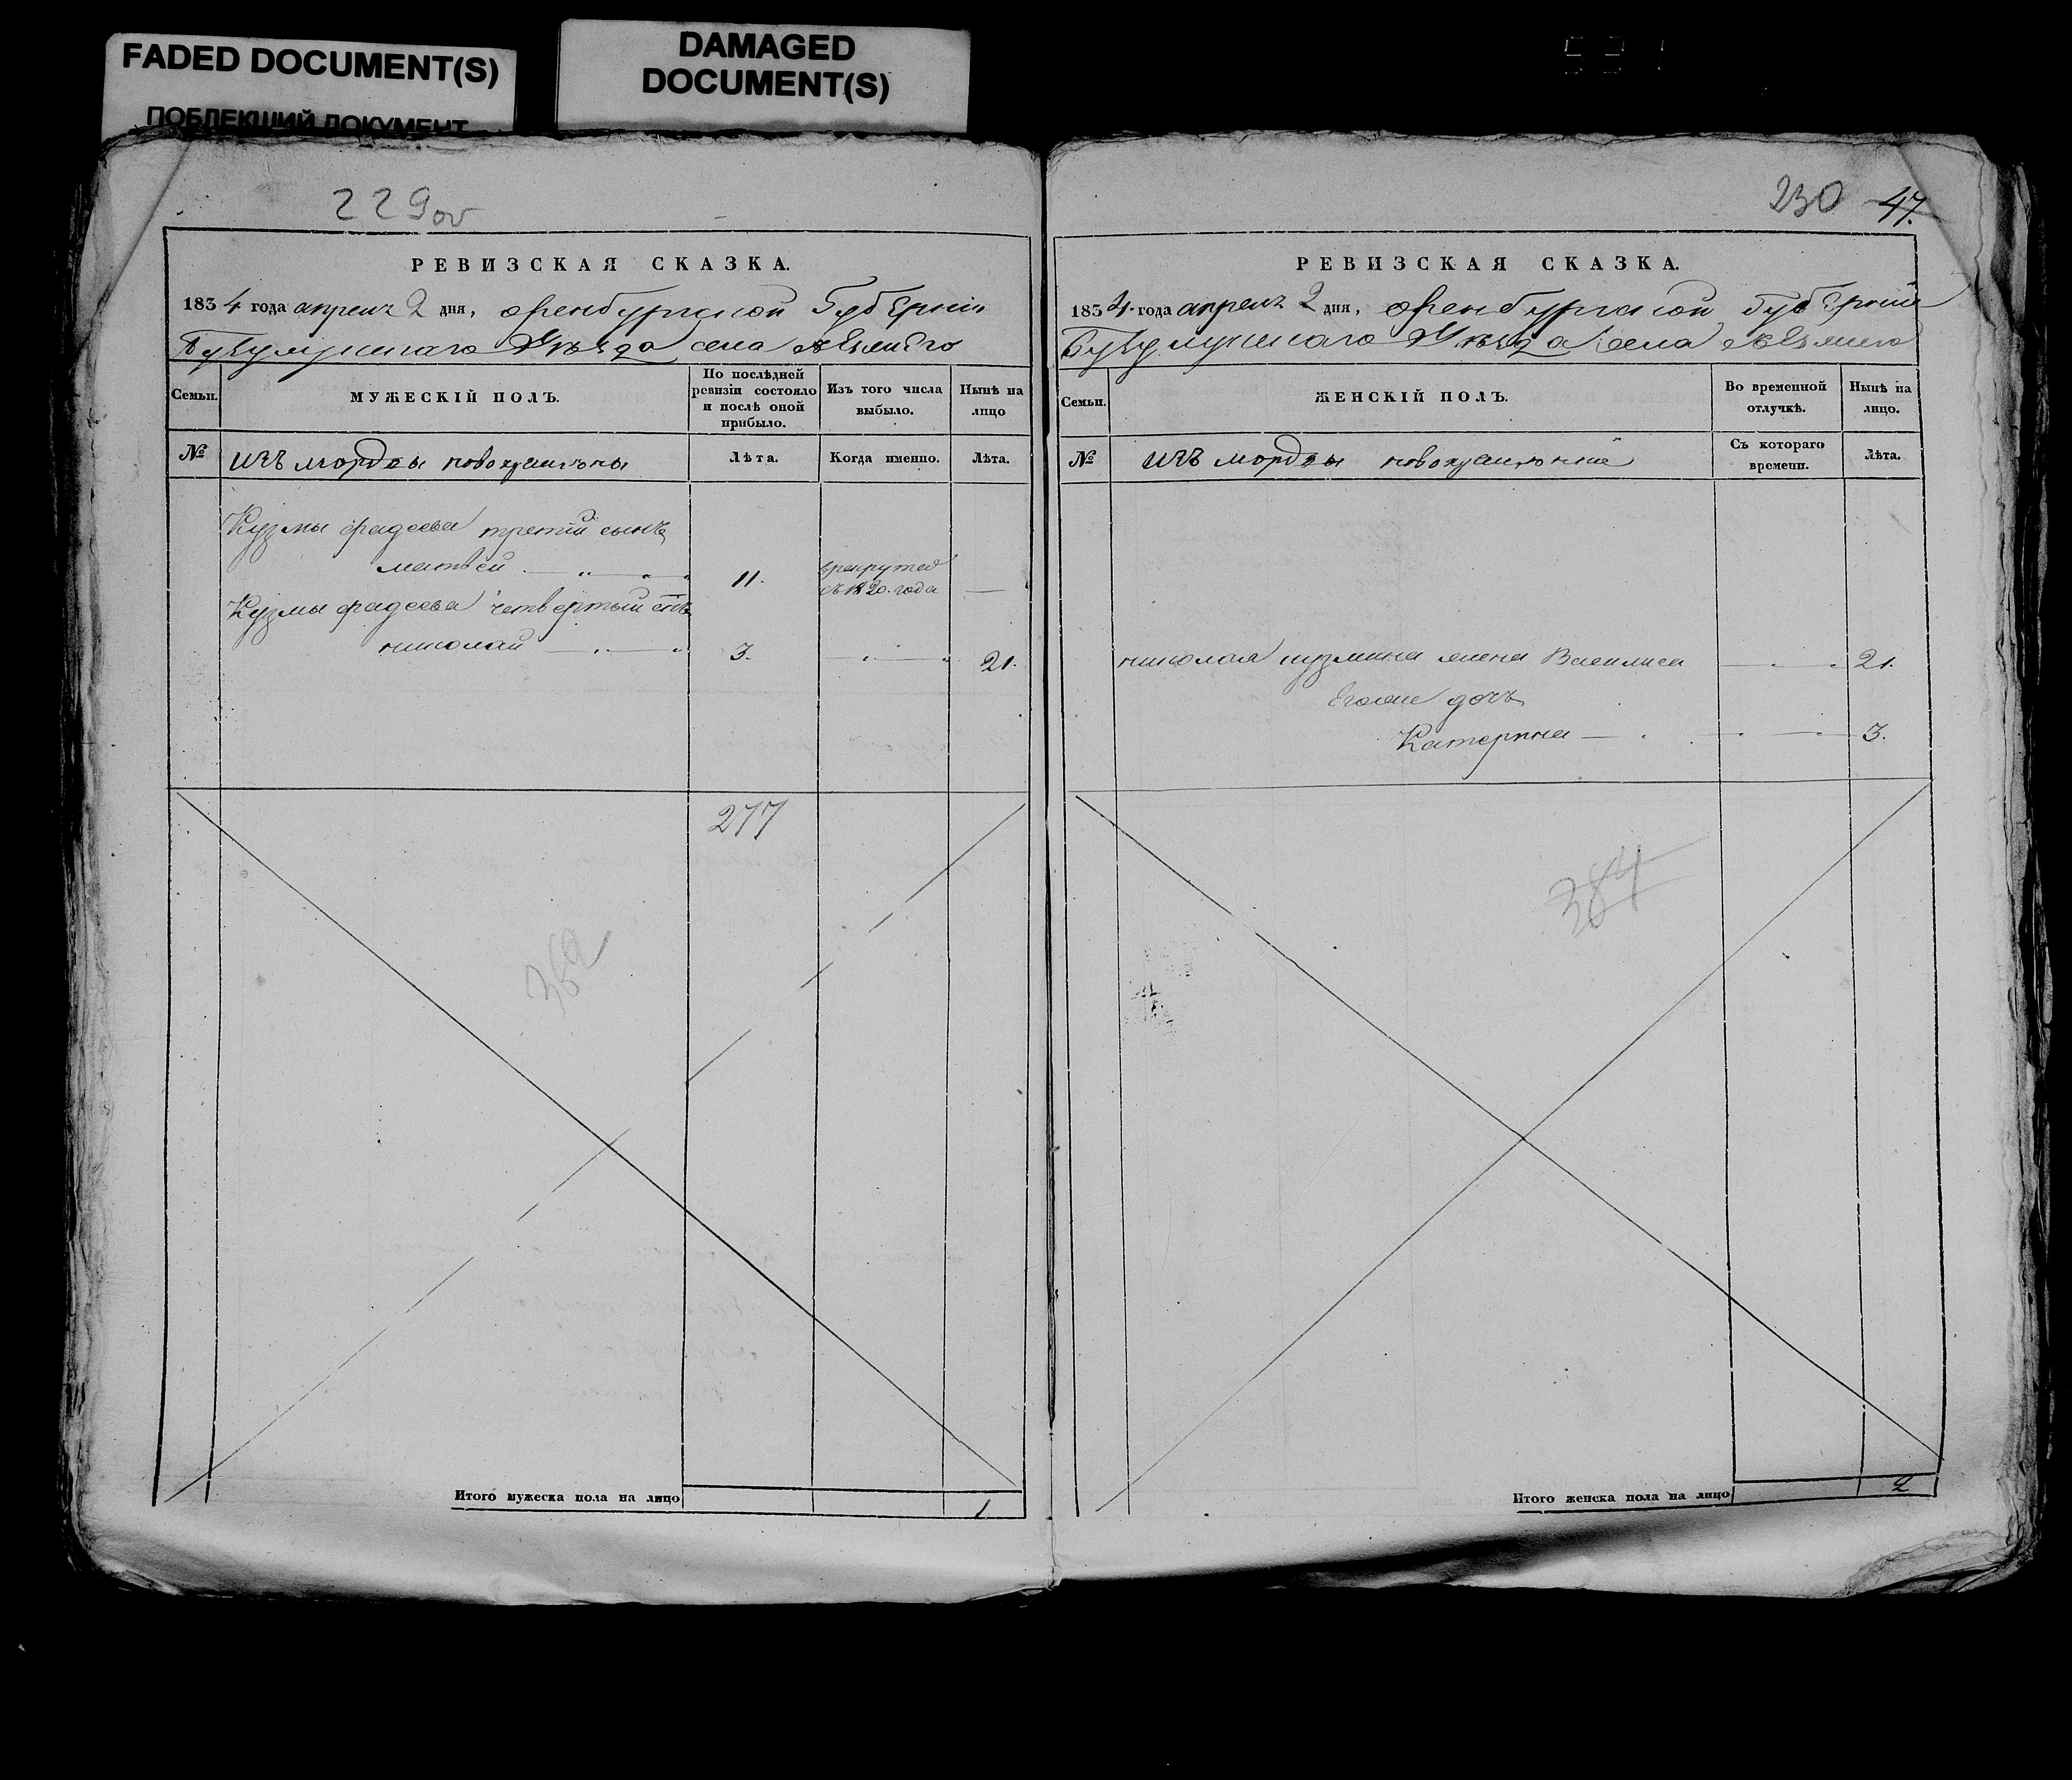 FADED DOCUMENT(S)
ПОБЛЕКШИЙ ДОКУМЕНТ
DAMAGED
DOCUMENT(S)
229об
РЕВИЗСКАЯ СКАЗКА.
1834 года апреля 2 дня, Оренбургской Губернии
Бугулминскаго Уезда села
Семьи.
МУЖЕСКІЙ ПОЛЪ.
По послѣдней ревизіи состояло и послѣ оной прибыло.
Изъ того числа выбыло.
Нынѣ на лицо
№
Изъ мордвы новокрещены
Лѣта.
Когда именно.
Лѣта.
Кузмы фадеева третий сынъ
матвей 11. в рекрутах съ 1820. года
Кузмы фадеева четвертый снъ
николай 3. 21.
277
362
Итого мужеска пола на лицо
1
230 47.
РЕВИЗСКАЯ СКАЗКА.
1834 года апреля 2 дня, Оренбургской Губернии
Бугулминскаго Уезда села
Семьи.
ЖЕНСКІЙ ПОЛЪ.
Во временной отлучкѣ.
Нынѣ на лицо.
№
Изъ мордвы новокрещены
Съ котораго времени.
Лѣта.
николая кузмина жена Василиса 21.
Егоже дочъ
Катерина 3.
384
Итого женска пола на лицо
2